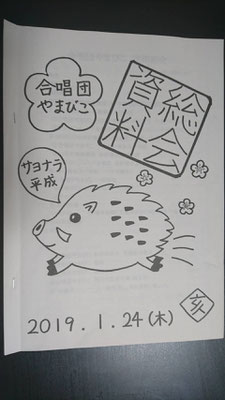 合唱団
やまびこ
総会
資料
サヨナラ
平成
亥
2019.1.24(木)